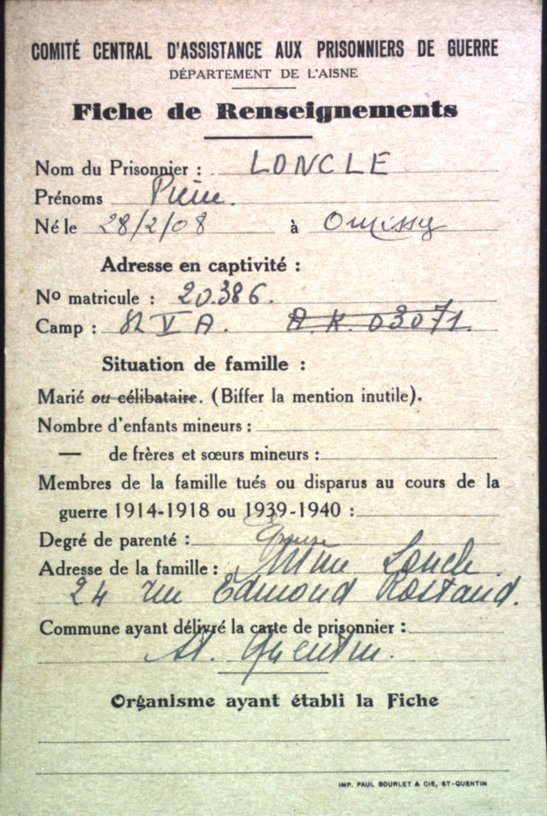 COMITÉ CENTRAL D'ASSISTANCE AUX PRISONNIERS DE GUERRE
DÉPARTEMENT DE L'AISNE
Fiche de Renseignements
Nom du Prisonnier : LONCLE
Prénoms Pierre.
Né le 28/2/08 à Omissy
Adresse en captivité :
No matricule : 20.386.
Camp : St V A. A.K. 03071.
Situation de famille :
Marié ou célibataire. (Biffer la mention inutile).
Nombre d'enfants mineurs :
— de frères et sœurs mineurs :
Membres de la famille tués ou disparus au cours de la
guerre 1914-1918 ou 1939-1940 :
Degré de parenté : Epouse
Adresse de la famille : Mme Loncle
24 rue Edmond Rostand.
Commune ayant délivré la carte de prisonnier :
St. Quentin.
Organisme ayant établi la Fiche
IMP. PAUL BOURLET & CIE, ST-QUENTIN